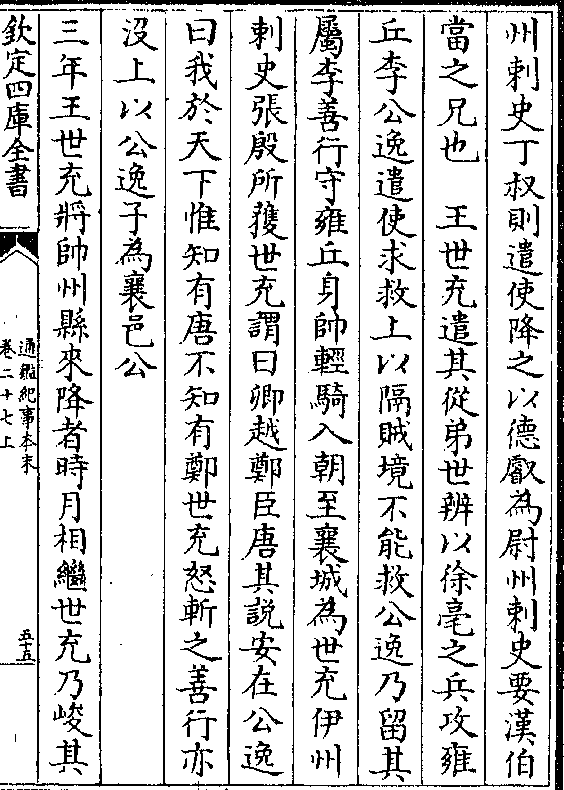 州刺史丁叔則遣使降之以德叡為尉州刺史要漢伯
當之兄也　王世充遣其從弟世辨以徐亳之兵攻雍
丘李公逸遣使求救上以隔賊境不能救公逸乃留其
屬李善行守雍丘身帥輕騎入朝至襄城為世充伊州
刺史張殷所獲世充謂曰卿越鄭臣唐其說安在公逸
曰我於天下惟知有唐不知有鄭世充怒斬之善行亦
沒上以公逸子為襄邑公
三年王世充將帥州縣來降者時月相繼世充乃峻其
欽定四庫全書
通鑑紀事本末
卷二十七上
五十五